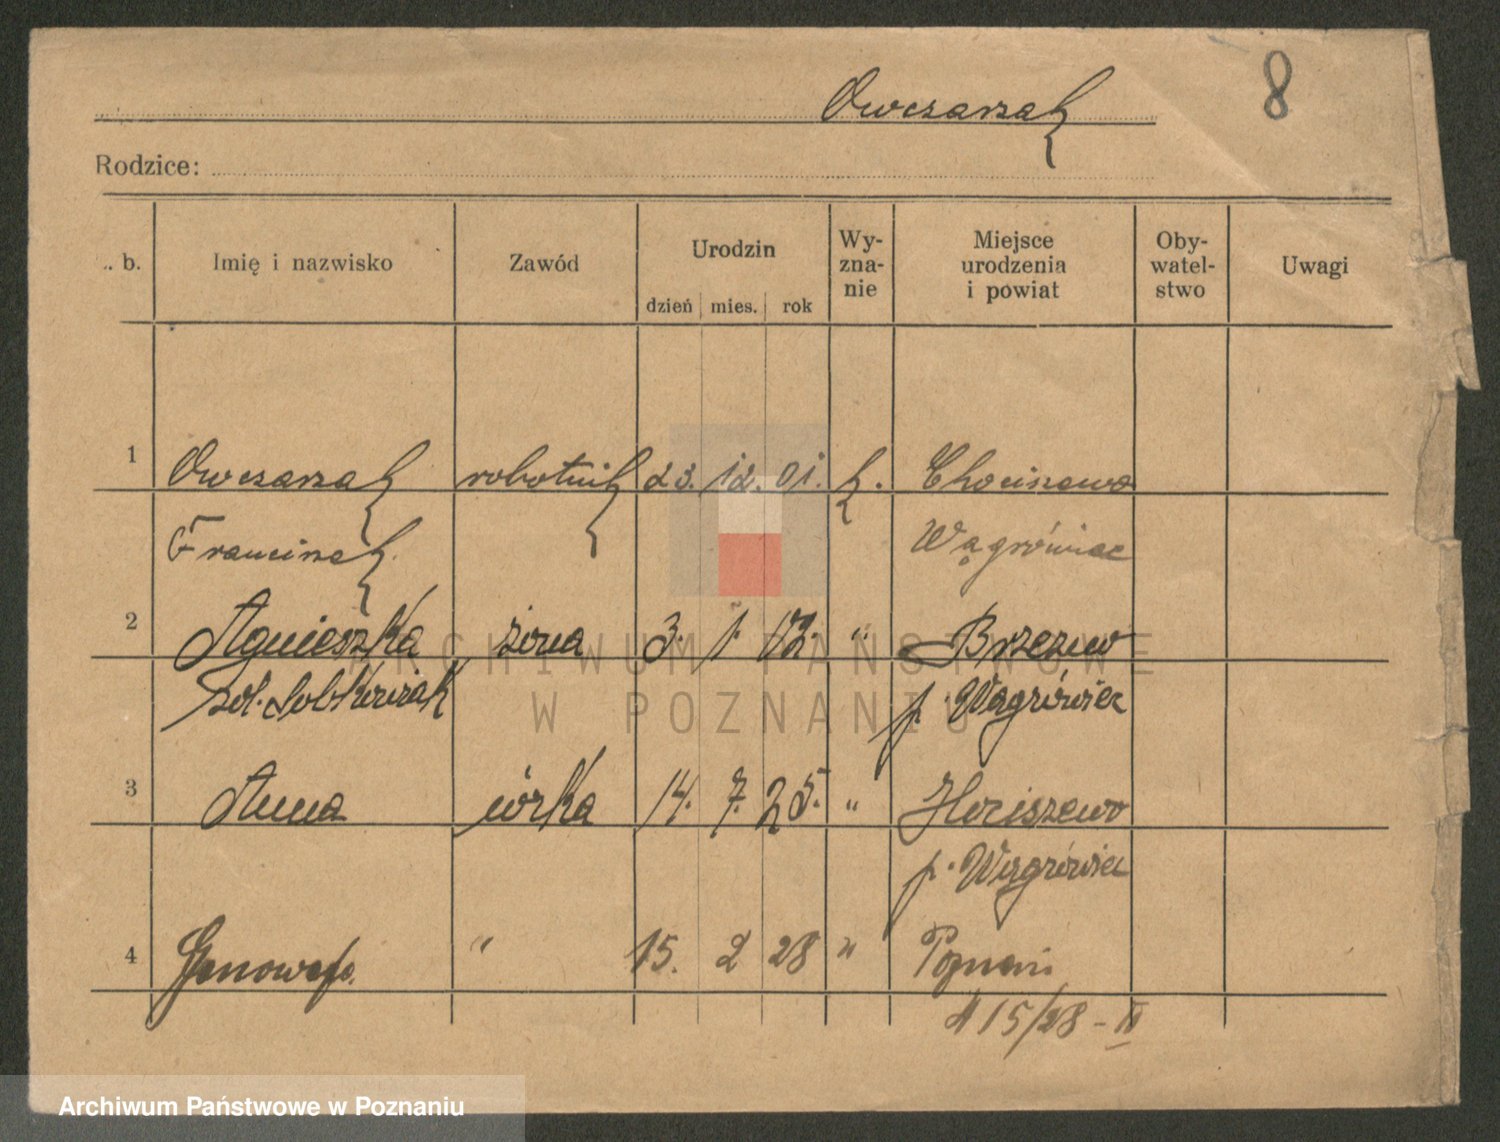 Owczarzak
8
Rodzice:
. b. Imię i nazwisko Zawód Urodzin dzień mies. rok Wy-zna-nie Miejsce urodzenia i powiat Oby-watel-stwo Uwagi
1 Owczarzak robotnik 23. 12. 01. k. Chociszewo
Franciszek Wągrówiec
2 Agnieszka żona 3. 1. 02. " Brzezno
Sobkowiak p. Wągrówiec
3 Anna córka 14. 7. 25. "
p. Wągrówiec
4 Genowefa " 15. 2 28 " Poznań
15/28 - II
ARCHIWUM PAŃSTWOWE
W POZNANIU
Archiwum Państwowe w Poznaniu